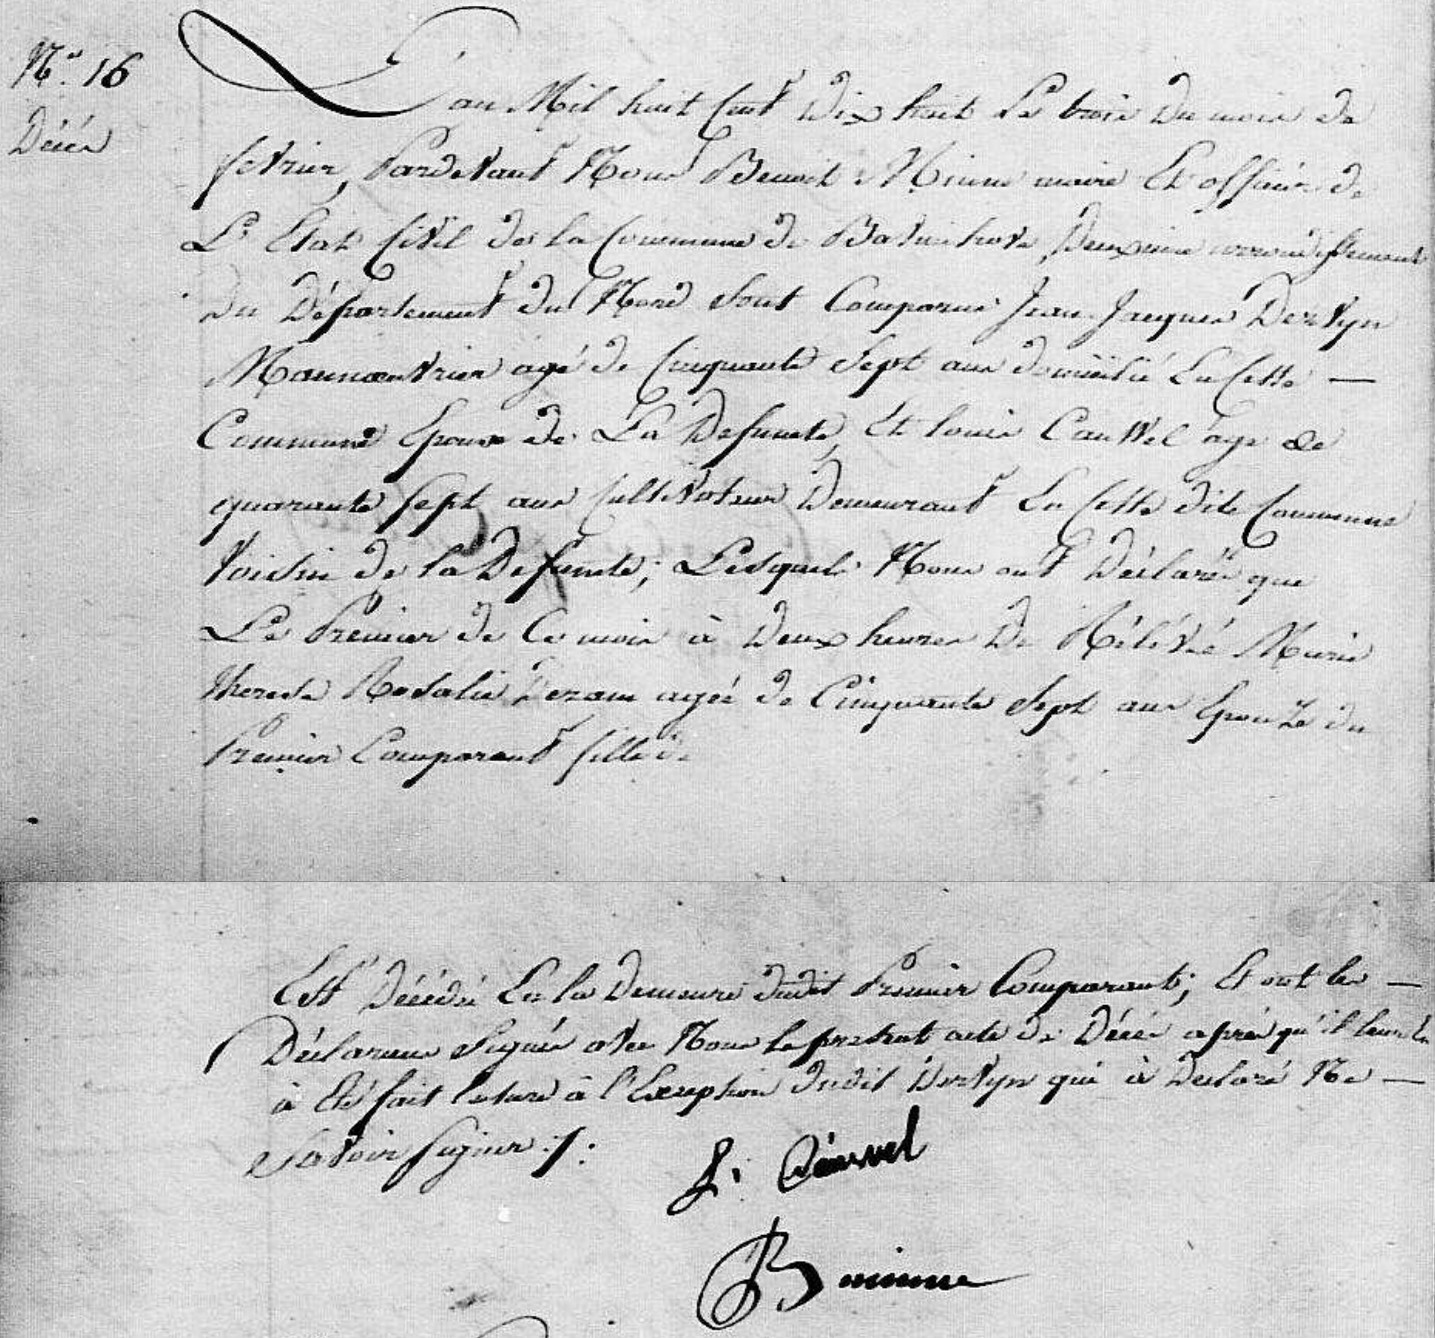 N.o 16
Décés
L'an Mil huit Cent Dix huit Le trois Du mois de
fevrier, Pardevant Nous Benoit Minne maire Et officier de
L'Etat Civil de la Commune de Bavinchove Deuxieme arrondissement
Du Département du Nord Sont Comparus Jean Jacques Dervyn
Manouvrier agé de Cinquante Sept ans domicilié En Cette —
Commune Epoux de La Defunte, Et Louis Cauwel age de
quarante Sept ans Cultivateur Demeurant En Cette dite Commune
Voisin de la Defunte; Lesquels Nous ont Déclarés que
Le Premier de Ce mois à Deux heures De Rélévé Marie
therese Rosalie agée de Cinquante Sept ans Epouze du
Premier Comparant fille de
Est Décédée En la Demeure dudit Premier Comparant; Et ont les —
Déclarans Signés avec Nous le présent acte de Décés aprés qu'il leur en
à Eté fait lecture à l'Exception dudit Dervyn qui à Declaré Ne —
Savoir Signer ./.
L. Cauwel
B minne